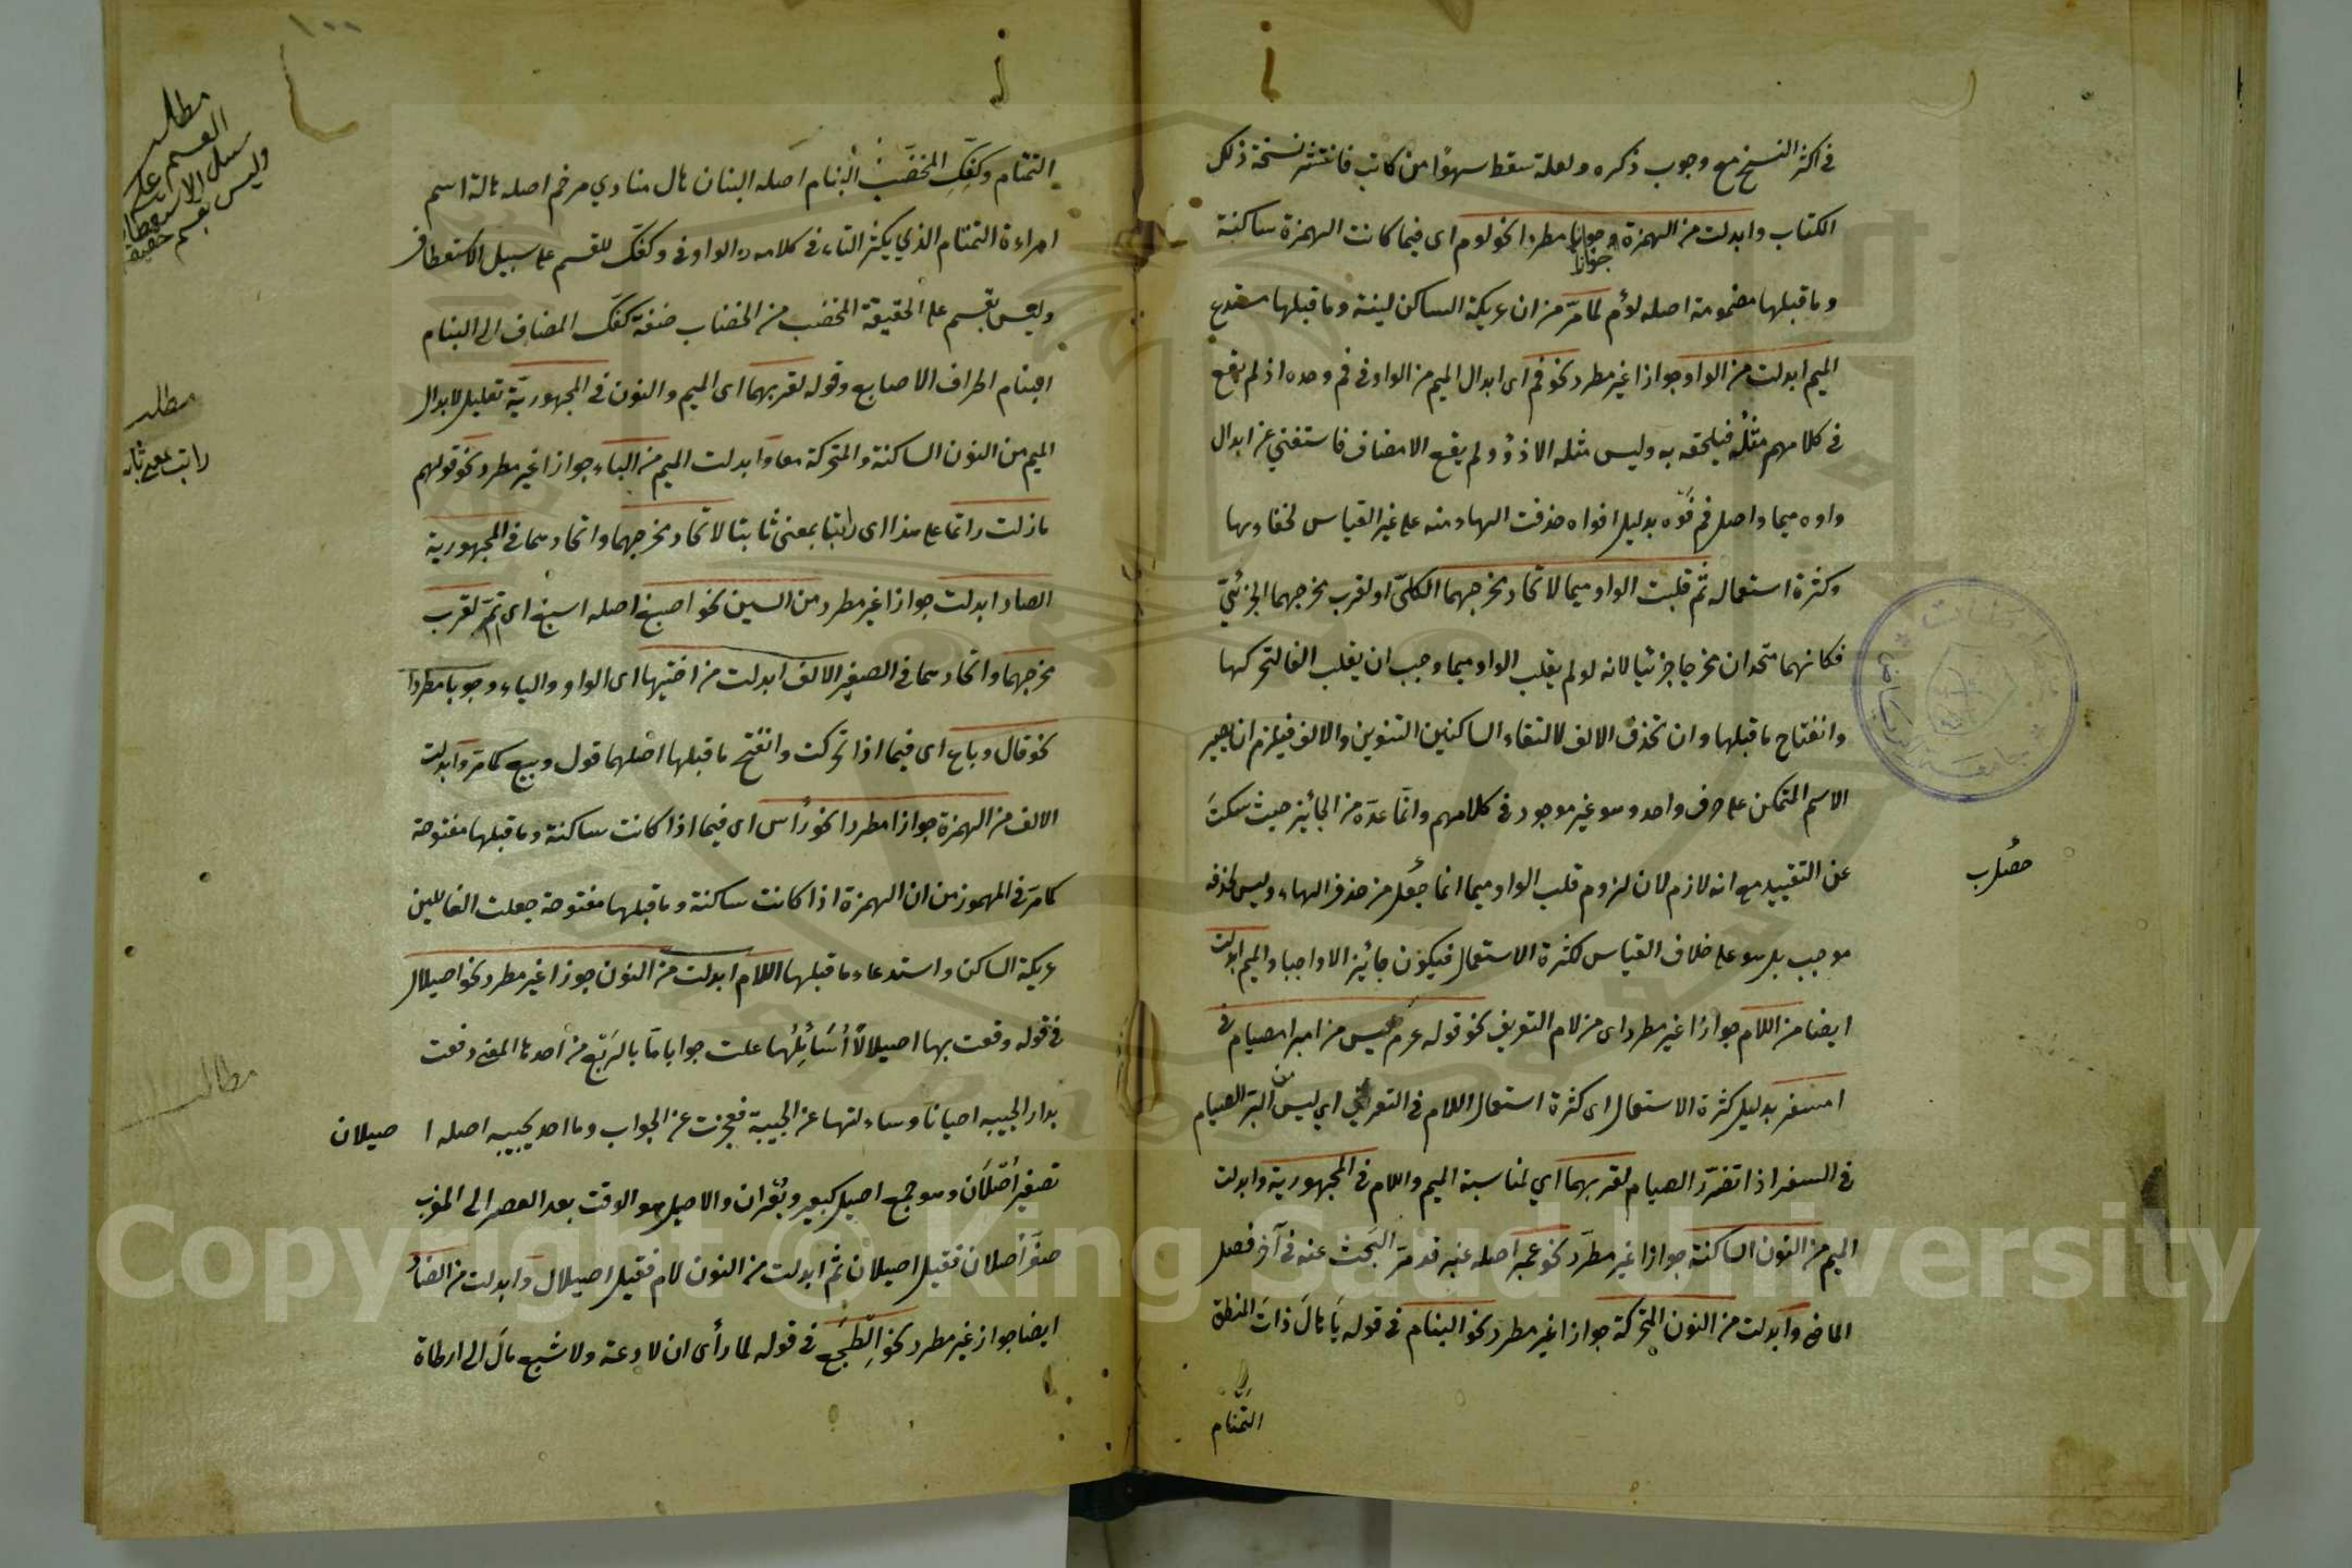 في اكثر النسخ مع وجوب ذكره ولعله سقط سهوًا من كاتب فانتشر نسخة ذلك
الكتاب وابدلت من الهمزة وجوبا مطردا نحو لوم اى فيما كانت الهمزة ساكنة
جوازا
وما قبلها مضمومة اصله لؤم لما مرّ من ان عريكة الساكن لينة وما قبلها مستدع
الميم ابدلت من الواو جوازا غير مطرد نحو فم اى ابدال الميم من الواو في فم وحده اذ لم يقع
في كلامهم مثلُه فيلحقه به وليس مثله الا ذوُ ولم يقع الا مضاف فاستغني عن ابدال
واوه ميما واصل فم فَوْه بدليل افواه حذفت الهاء منه على غير القياس لخفاءها
وكثرة استعماله ثمّ قلبت الواو ميما لاتحاد مخرجهما الكلىّ او لقرب مخرجهما الجزئيّ
فكانهما متحدان مخرجا جزئيا لانه لو لم يقلب الواو ميما وجب ان يقلب الفا لتحركها
وانفتاح ما قبلها وان تحذف الالف لالتقاء الساكنين التنوين والالف فيلزم ان يصير
الاسم المتمكن على حرف واحد وهو غير موجود في كلامهم وانّما عدّه من الجائيز حيث سكتَ
عن التقييد مع انه لازم لان لزوم قلب الواو ميما انما حصُل من حذف الهاء وليس لحذفه
حصُل ب
موجب بل هو على خلاف القياس لكثرة الاستعمال فيكون جائيز الا واجبا والميم ابدلت
ايضا من اللام جوازًا غير مطرد اى من لام التعريف نحو قوله عرم ليس من امبر امصيام في
امسفر بدليل كثرة الاستعمال اى كثرة استعمال اللام في التعريف اي ليس من البرّ الصيام
في السفر اذا تضرّر الصيام لقربهما اي لمناسبة الميم واللام في المجهورية وابدلت
الميم من النون الساكنة جوازا غير مطرّد نحو عمبر اصله عنبر قد مرّ البحث عنه في آخر فصل
الماضي وابدلت من النون المتحركة جوازا غير مطرد نحو البنام في قوله يَا هالَ ذاتَ المنطق
التمتام
١٠٠
التمتام وكفّك المخضّب البنام اصله البنان هال منادي مرخم اصله هالة اسم
امراءة التمتام الذي يكثر التاء في كلامه والواو في وكفّك للقسم على سبيل الاستعطاف
وليس بقسم على الحقيقة المخضب من الخضاب صفة كفّك المضاف الى البنام
البنام اطراف الاصابع وقوله لقربهما اى الميم والنون في المجهوريّة تعليل لابدال
الميم من النون الساكنة والمتحركة معا وابدلت الميم من الباء جوازا غير مطرد نحو قولهم
مازلت راتما على هذا اى راتبا بمعنى ثابتا لاتحاد مخرجهما واتحادهما في المجهورية
الصاد ابدلت جوازا غير مطرد من السين نحو اصبغ اصله اسبغ اى تمّم لقرب
مخرجهما واتحادهما في الصفير الالف ابدلت من اختيها اى الواو والياء وجوبا مطردا
نحو قال وباع اى فيما اذا تحركت وانفتح ما قبلها اصلهما قول وبيع كما مرّ وابدلت
الالف من الهمزة جوازا مطردا نحو رُاس اى فيما اذا كانت ساكنة وما قبلها مفتوحة
كما مرّ في المهموز من ان الهمزة اذا كانت ساكنة وما قبلها مفتوحة جعلت الفا للين
عريكة الساكن واستدعاء ما قبلها اللام ابدلت من النون جوزا غير مطرد نحو اصيلال
في قوله وقعت بها اصيلالًا أُسَائِلُها علت جوابا مّا بالرَبع من احد ها المعنى وقعت
بدار الحبيبه احيانا وساءلتها عن الحبيبة فعجزت عن الجواب وما احد يجيبيه اصله اصيلان
تصغير أُصْلَان وهو جمع اصيل كبعير وبُعْران والاصيل هو الوقت بعد العصر الى المغرب
صغّر أُصلان فقيل اصيلان ثم ابدلت من النون لام فقيل اصيلال وابدلت من الضاد
ايضا جواز غير مطرد نحو الْطَجَع في قوله لما رأى ان لا دعة ولا شبع مالَ الى ارطاة
مطلب
القسم على
سبيل الاستعطاف
وليس بقسم حقيقة
مطلب
راتب بمعنى ثابت
مطالب
Copyright © King Saud University